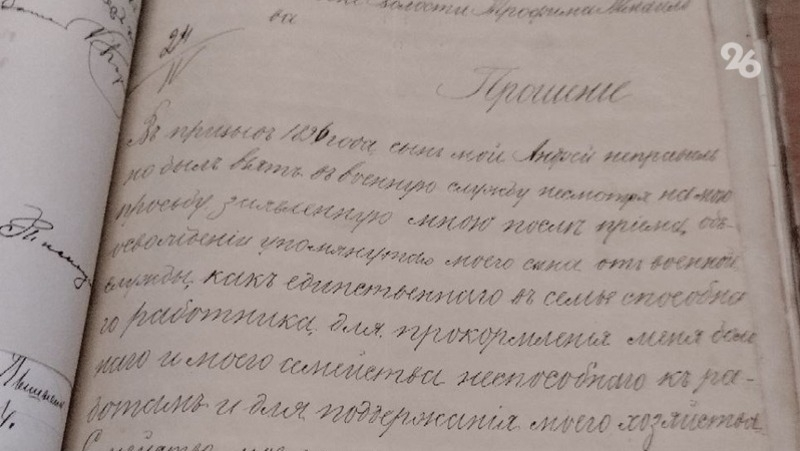 волости Трофима Михайло
ва
24
IV
26
Прошенiе
Въ призывъ 1896 года, сынъ мой Андрей неправиль
но былъ взятъ въ военную службу несмотря на мою
просьбу заявленную мною послѣ прiема, объ
освобожденiи упомянутаго моего сына отъ военной
службы, какъ единственнаго въ семье способна
го работника, для прокормленiя меня боль
наго и моего семейства неспособнаго къ ра-
ботамъ и для поддержанiя моего хозяйства.
Семейство